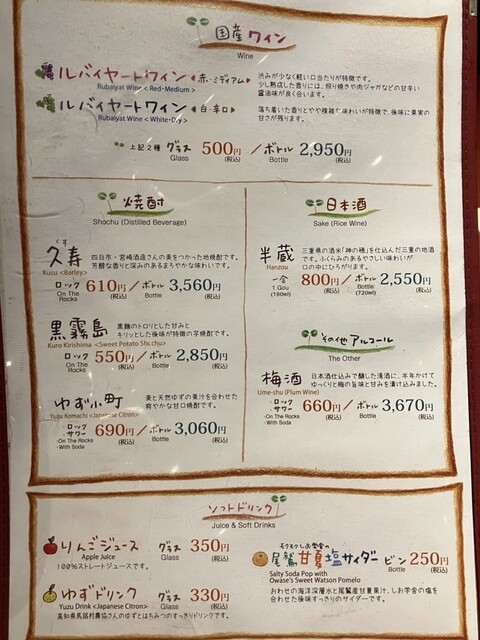 国産ワイン
Wine
ルバイヤートワイン <赤・ミディアム>
Rubaiyat Wine <Red・Medium>
渋みが少なく軽い口当たりが特徴です。
少し熟成した香りには、照り焼きや肉ジャガなどの甘辛い
醤油味が良く合います。
ルバイヤートワイン <白・辛口>
Rubaiyat Wine <White・Dry>
落ち着いた香りとやや複雑な味わいが特徴で、後味に果実の
甘さが残ります。
上記2種 グラス 500円 / ボトル 2,950円
Glass (税込) Bottle (税込)
焼酎
Shochu (Distilled Beverage)
久寿
くす
Kusu <Barley>
四日市・宮崎酒造さんの麦をつかった地焼酎です。
芳醇な香りと深みのあるまろやかな味わいです。
ロック 610円 / ボトル 3,560円
On The Rocks (税込) Bottle (税込)
黒霧島
Kuro Kirishima <Sweet Potato Shochu>
黒麹のトロリとした甘みと
キリッとした後味が特徴の芋焼酎です。
ロック 550円 / ボトル 2,850円
On The Rocks (税込) Bottle (税込)
ゆず小町
Yuzu Komachi <Japanese Citron>
麦と天然ゆずの果汁を合わせた
爽やかな甘口焼酎です。
・ロック
・サワー 690円 / ボトル 3,060円
・On The Rocks
・With Soda (税込) Bottle (税込)
日本酒
Sake (Rice Wine)
半蔵
Hanzou
三重県の酒米「神の穂」を仕込んだ三重の地酒
です。ふくらみのあるやさしい味わいが
口の中にひろがります。
一合 800円 / ボトル 2,550円
1 Gou (180ml) (税込) Bottle (720ml) (税込)
その他アルコール
The Other
梅酒
Ume-shu (Plum Wine)
日本酒仕込みで醸した清酒に、半年かけて
ゆっくりと梅の旨味と甘みを漬け込みました。
・ロック
・サワー 660円 / ボトル 3,670円
・On The Rocks
・With Soda (税込) Bottle (税込)
ソフトドリンク
Juice & Soft Drinks
りんごジュース グラス 350円
Apple Juice Glass (税込)
100%ストレートジュースです。
ゆずドリンク グラス 330円
Yuzu Drink <Japanese Citron> Glass (税込)
高知県馬路村農協さんのゆずとはちみつのすっきりドリンクです。
尾鷲甘夏塩サイダー ビン 250円
Bottle (税込)
Salty Soda Pop with
Owase's Sweet Watson Pomelo
おわせの海洋深層水と尾鷲産甘夏果汁、しお学舎の塩
を合わせた後味すっきりのサイダーです。